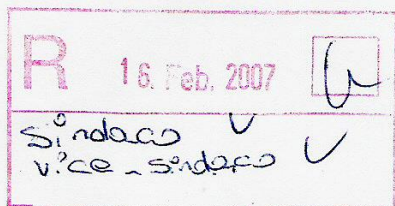 R 16. Feb. 2007
sindaco
vice-sindaco